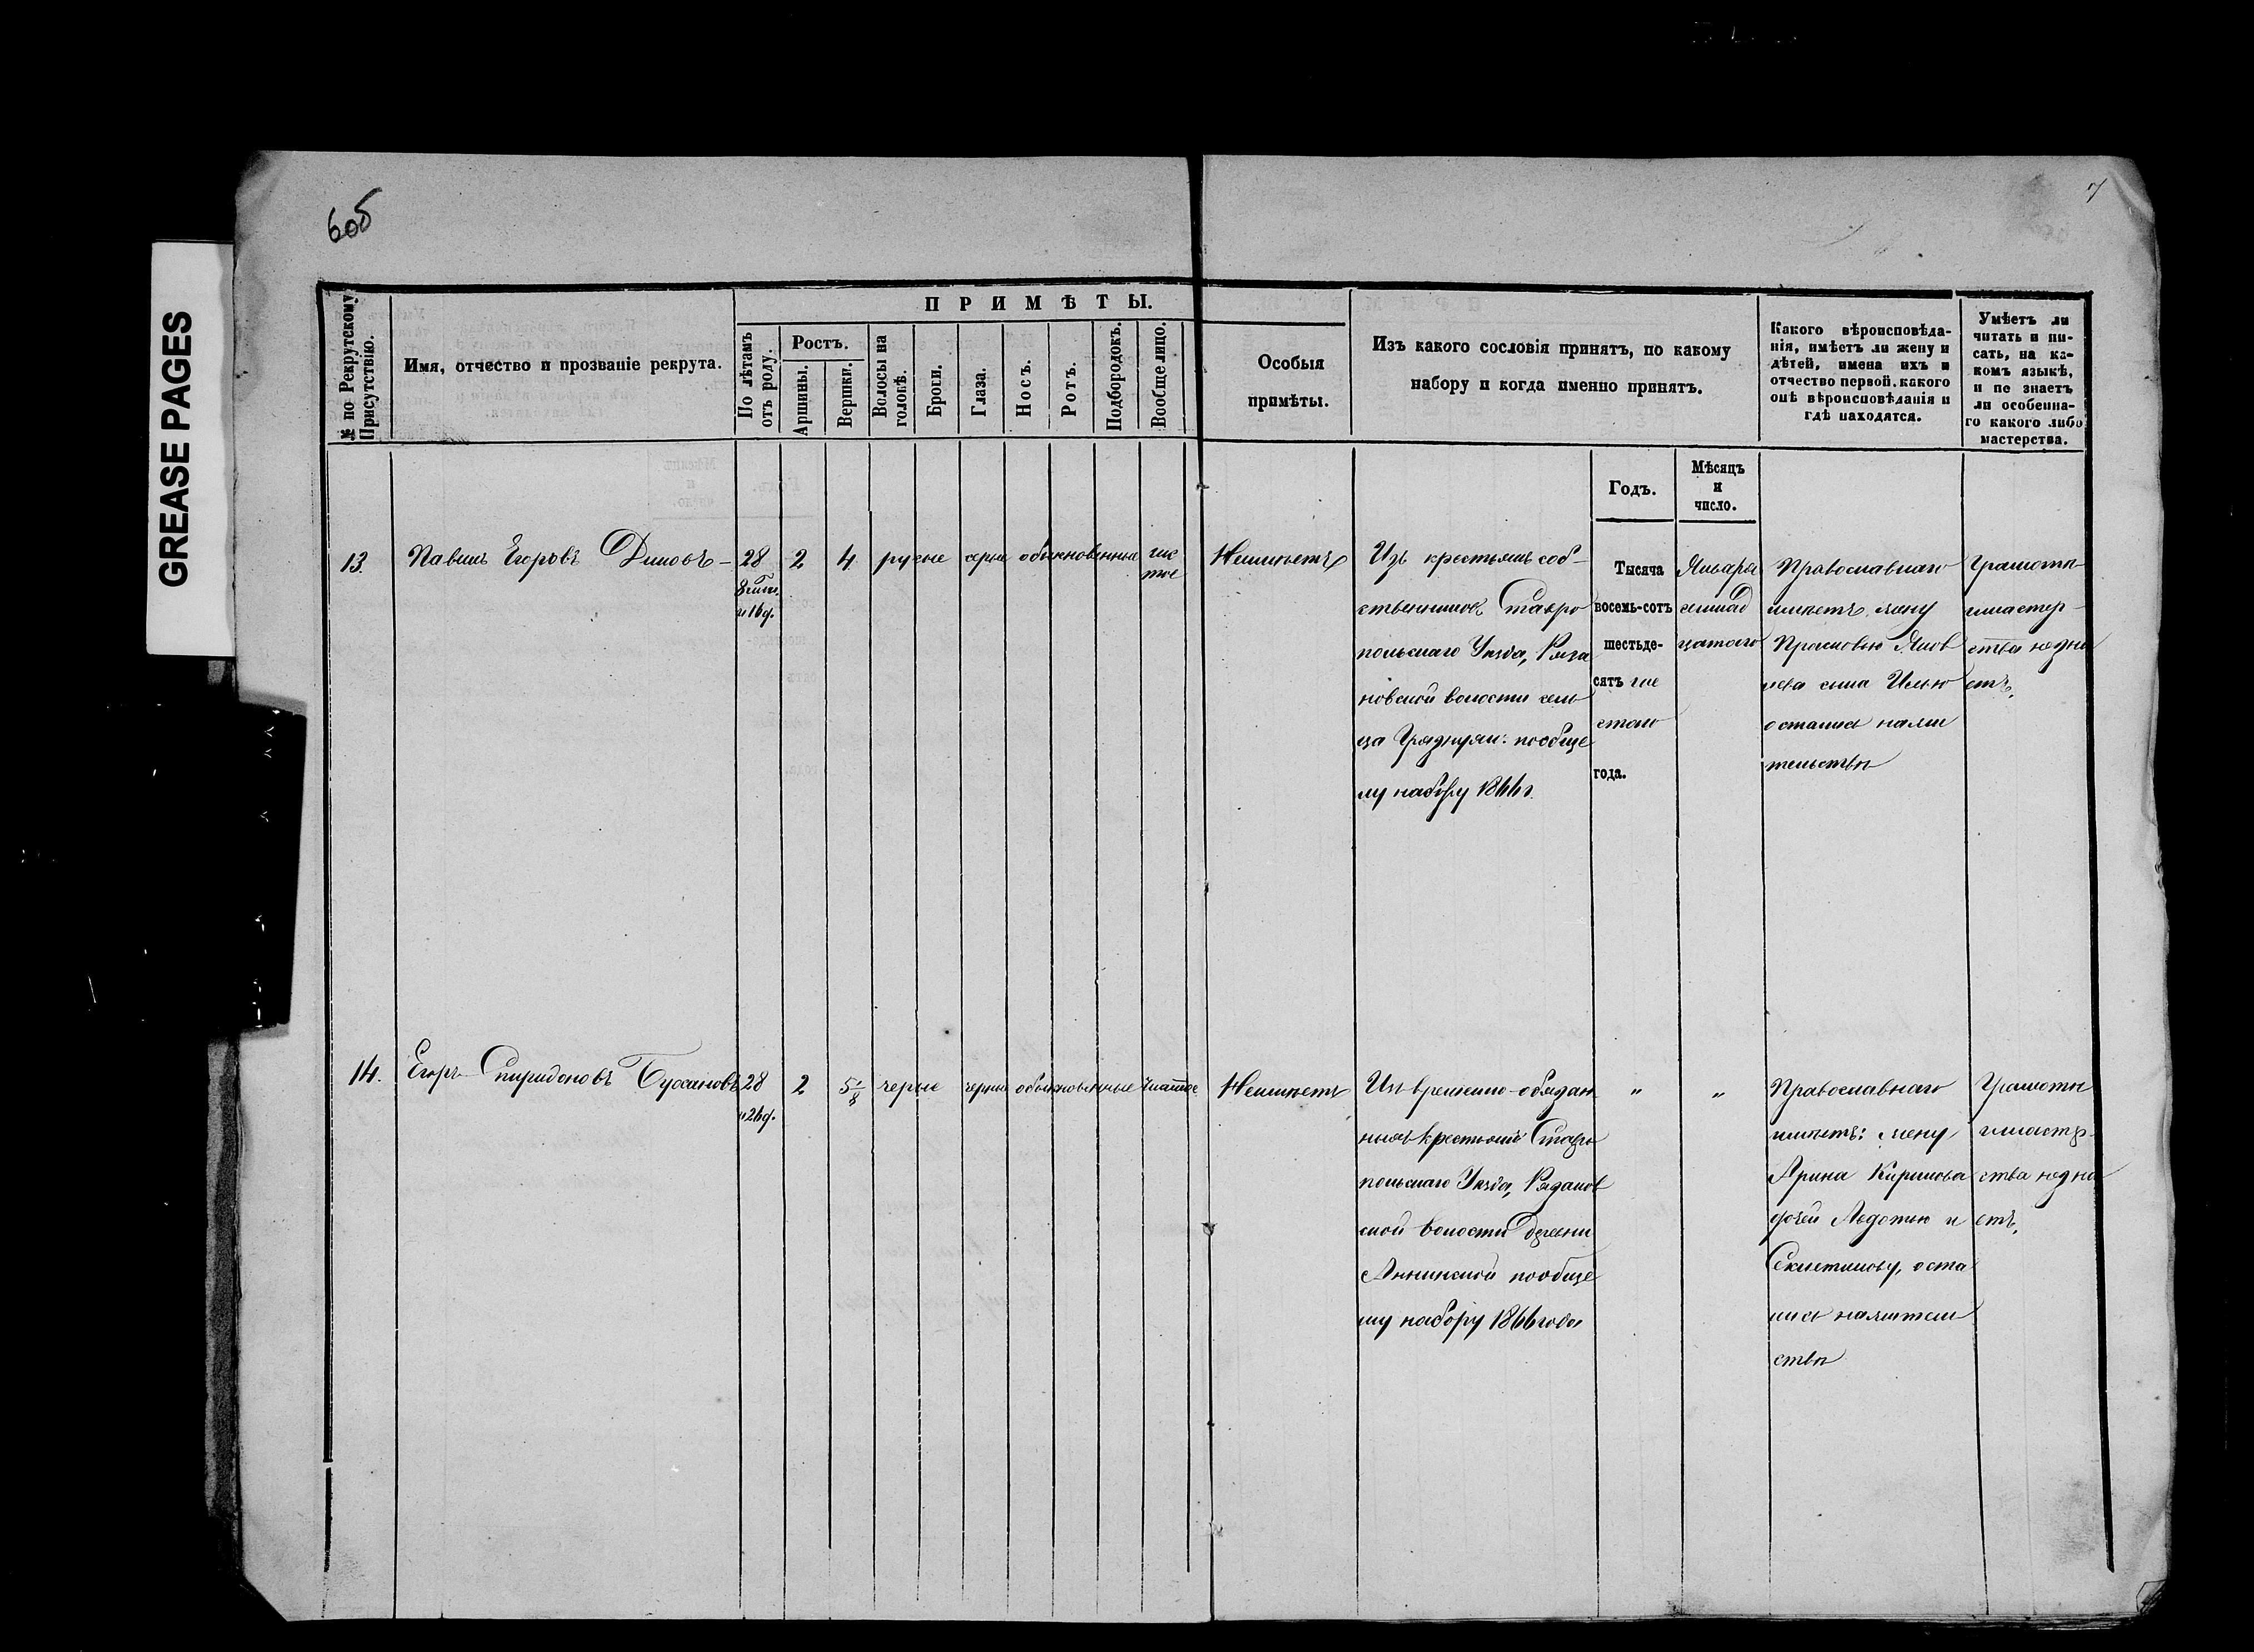 605
7
GREASE PAGES
№ по Рекрутскому Присутствію.
Имя, отчество и прозваніе рекрута.
ПРИМѢТЫ.
По лѣтамъ отъ роду.
Ростъ.
Аршины.
Вершки.
Волосы на головѣ.
Брови.
Глаза.
Носъ.
Ротъ.
Подбородокъ.
Вообще лицо.
Особыя
примѣты.
Изъ какого сословія принятъ, по какому
набору и когда именно принятъ.
Какого вѣроисповѣда-
нія, имѣетъ ли жену и
дѣтей, имена ихъ и
отчество первой, какого
онѣ вѣроисповѣданія и
гдѣ находятся.
Умѣетъ ли
читать и пи-
сать, на ка-
комъ языкѣ,
и не знаетъ
ли особенна-
го какого либо
мастерства.
Годъ.
Мѣсяцъ
и
число.
13.
Павелъ Егоровъ
28
и 16 д.
2
4
русые
серые
обыкновенные
чис
тое
Неимѣетъ
Изъ крестьянъ соб-
ственниковъ Ставро
польскаго Уезда, Ряза
новской волости сель
ца
пообще
му набору 1866 г.
Тысяча
восемь-сотъ
шестьде-
сятъ шес
стаго
года.
Января
семнад
цатаго
Православнаго
имѣетъ жену
Прасковью Яков
лева сына Илью
остались нажи
тельствѣ
Грамоты
имастер-
ства незна
етъ.
14.
Егоръ Спиридоновъ
28
и 26 д.
2
5 1/8
черные
черные
обыкновенные
чистое
Неимѣетъ
Изъ временно-обязан
ныхъ крестьянъ Ставро
польскаго Уезда, Рязанов
ской волости деревни
Аннинской пообще
му набору 1866 года
"
"
Православнаго
имѣетъ: жену
Арина Кирилова
дочей Авдотью и
оста
лись нажитель
ствѣ
Грамоты
имастер-
ства незна
етъ.